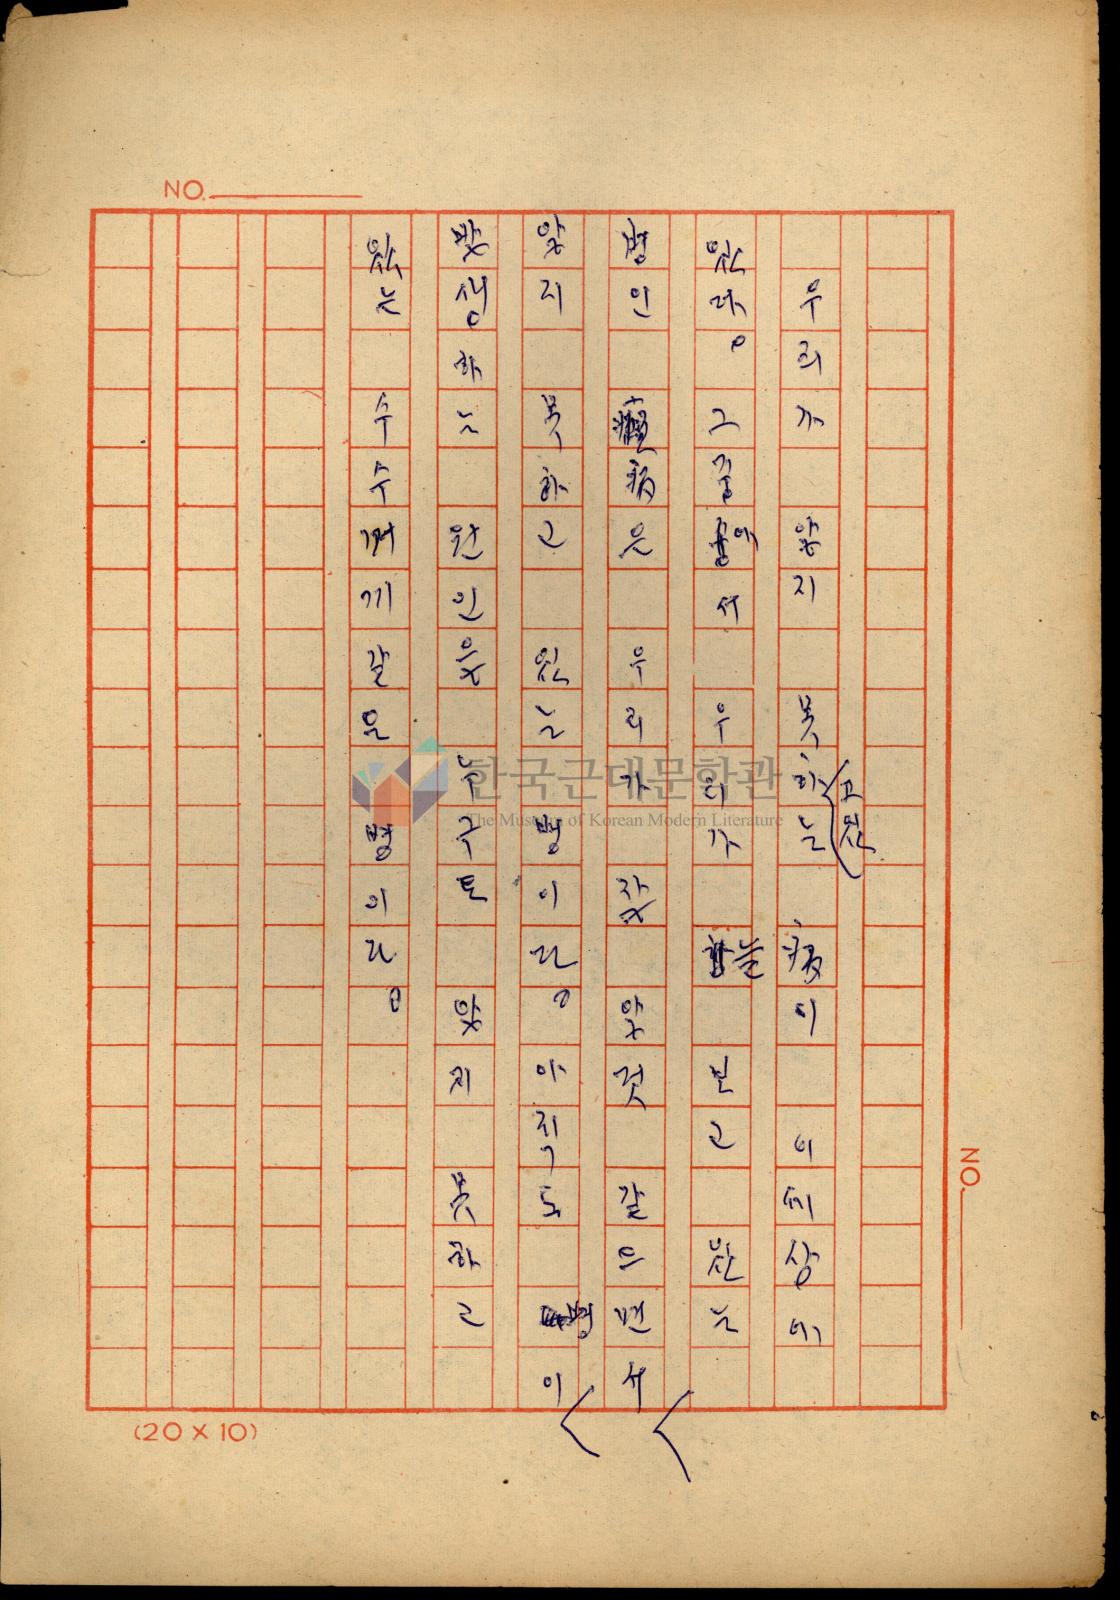 NO.
우리가 알지 못하고 있는 病이 이 세상에
있다. 그 중에서 우리가 늘 보고 있는
병인 癌病은 우리가 잘 알것 같으면서
알지 못하고 있는 병이다. 아직도 병이
발생하는 원인을 누구도 알지 못하고
있는 수수께끼 같은 병이다.
(20 X 10)
NO.
한국근대문학관
The Museum of Korean Modern Literature